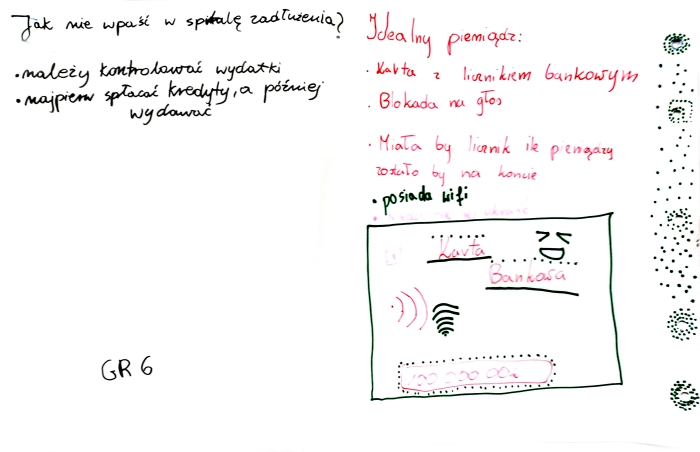 Jak nie wpaść w spiralę zadłużenia?
• należy kontrolować wydatki
• najpierw spłacać kredyty, a później
wydawać
GR 6
Idealny pieniądz:
• Karta z licznikiem bankowym
• Blokada na głos
• Miała by licznik ile pieniędzy
zostało by na koncie
• posiada wifi
Karta
Bankowa